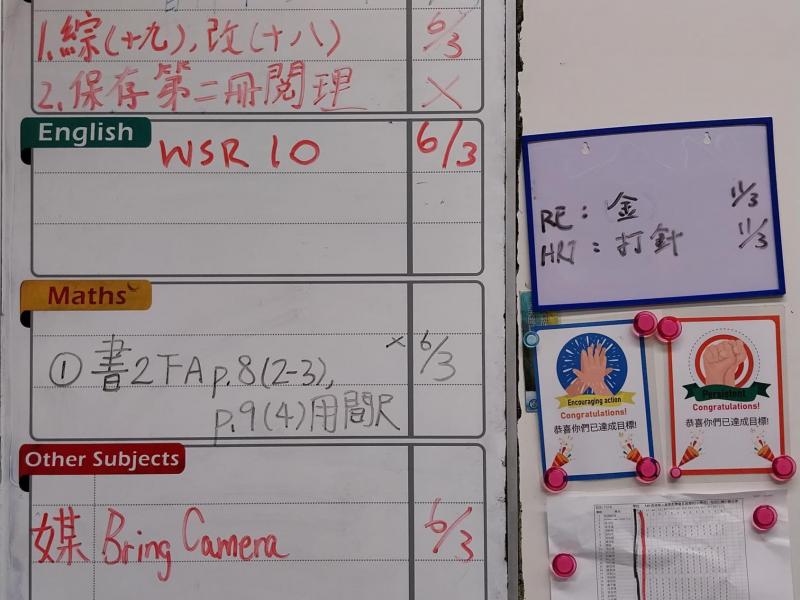 1. 綜(十九), 改(十八) 6/3
2. 保存第二冊閱理 X
English
WSR 10 6/3
Maths
① 書2下A p.8(2-3), x 6/3
p.9(4)用間尺
Other Subjects
媒 Bring Camera 6/3
RE: 金 11/3
HRT: 打針 11/3
Encouraging action
Congratulations!
恭喜你們已達成目標!
Persistent
Congratulations!
恭喜你們已達成目標!